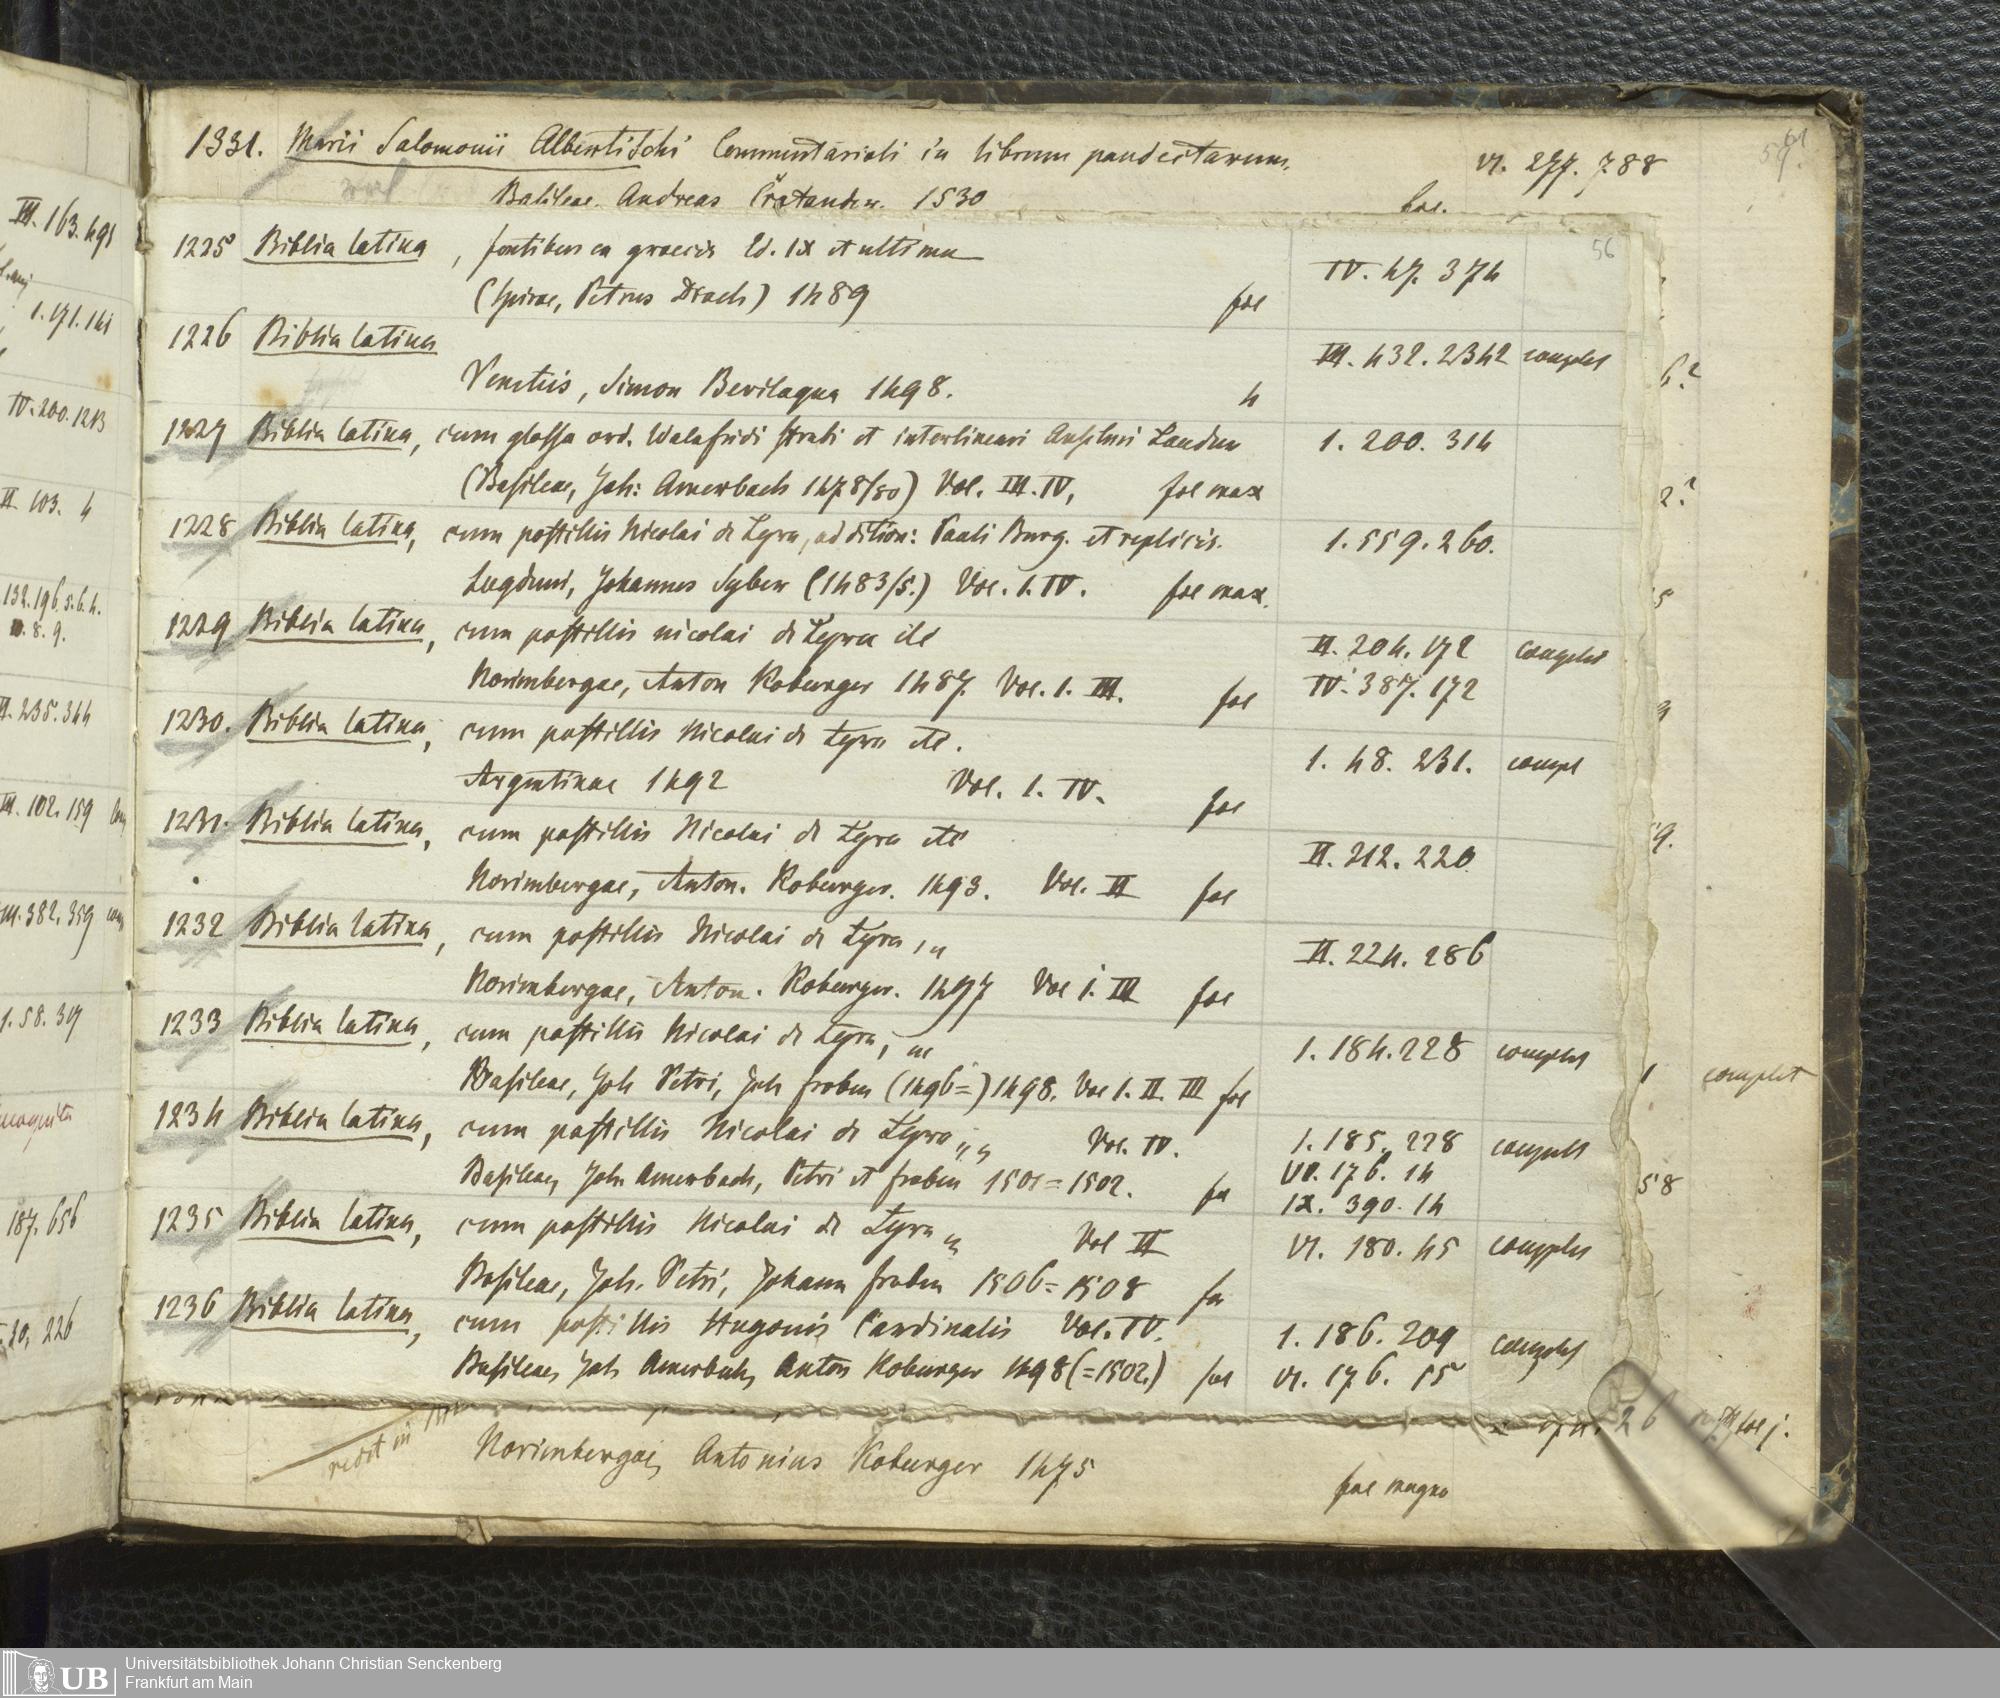 1331. Marii Salomonii Albertischi Commentarioli in librum pandectarum. VI. 277. 788
Basileae. Andreas Cratander. 1530 foe.
56
1225 Biblia latina, fontibus ex graecis Ed. IX et ultima IV. 47. 374
(Spirae, Petrus Drach) 1489 foe
1226 Biblia latina III. 432. 2342 complet
Venetiis, Simon Bevilaqua 1498. 4
1227 Biblia latina, cum glossa ord. Walafridi Strabi et interlineari Anselmi Laudun 1. 200. 314
(Basileae, Joh: Amerbach 1478/80) Vol. III. IV, foe max
1228 Biblia latina, cum postillis Nicolai de Lyra, addition: Pauli Burg. et replicis. 1. 559. 260.
Lugduni, Johannes Syber (1483/5.) Voe. 1. IV. foe max.
1229 Biblia latina, cum postillis nicolai de Lyra etc II. 204. 172 complet
Norimbergae, Anton Koburger 1487. Voe. 1. III. foe IV. 387. 172
1230. Biblia latina, cum postillis Nicolai de Lyra etc. 1. 48. 231. compl
Argentinae 1492 Voe. 1. IV. foe
1231. Biblia latina, cum postillis Nicolai de Lyra etc II. 212. 220
Norimbergae, Anton. Koburger. 1493. Voe. II foe
1232 Biblia latina, cum postillis Nicolai de Lyra, " II. 224. 286
Norimbergae, Anton. Koburger. 1497 Voe 1. III foe
1233 Biblia latina, cum postillis Nicolai de Lyra, " 1. 184. 228 complet
Basileae, Joh Petri, Joh froben (1496=) 1498. Voe 1. II. III foe
1234 Biblia latina, cum postillis Nicolai de Lyra " " Voe. IV. 1. 185. 228 complet
Basileae, Joh. Amerbach, Petri et froben 1501=1502. foe VI. 176. 14
IX. 390. 14
1235 Biblia latina, cum postillis Nicolai de Lyra " Vol II VI. 180. 45 complet
Basileae, Joh. Petri, Johann froben 1506=1508 foe
1236 Biblia latina, cum postillis Hugonis Cardinalis Voe. IV. 1. 186. 209 complet
Basileae, Joh Amerbach, Anton Koburger 1498 (=1502.) foe VI. 176. 15
Norimbergae, Antonius Koburger 1475
foe magno
III. 163. 491
1. 171. 141
IV. 200. 1213
II. 103. 4
132. 196. 5. 6. 4.
8. 9.
II. 235. 344
III. 102. 159
III. 382. 359
1. 58. 39
187. 656
30. 226
complet
58
UB
Universitätsbibliothek Johann Christian Senckenberg
Frankfurt am Main